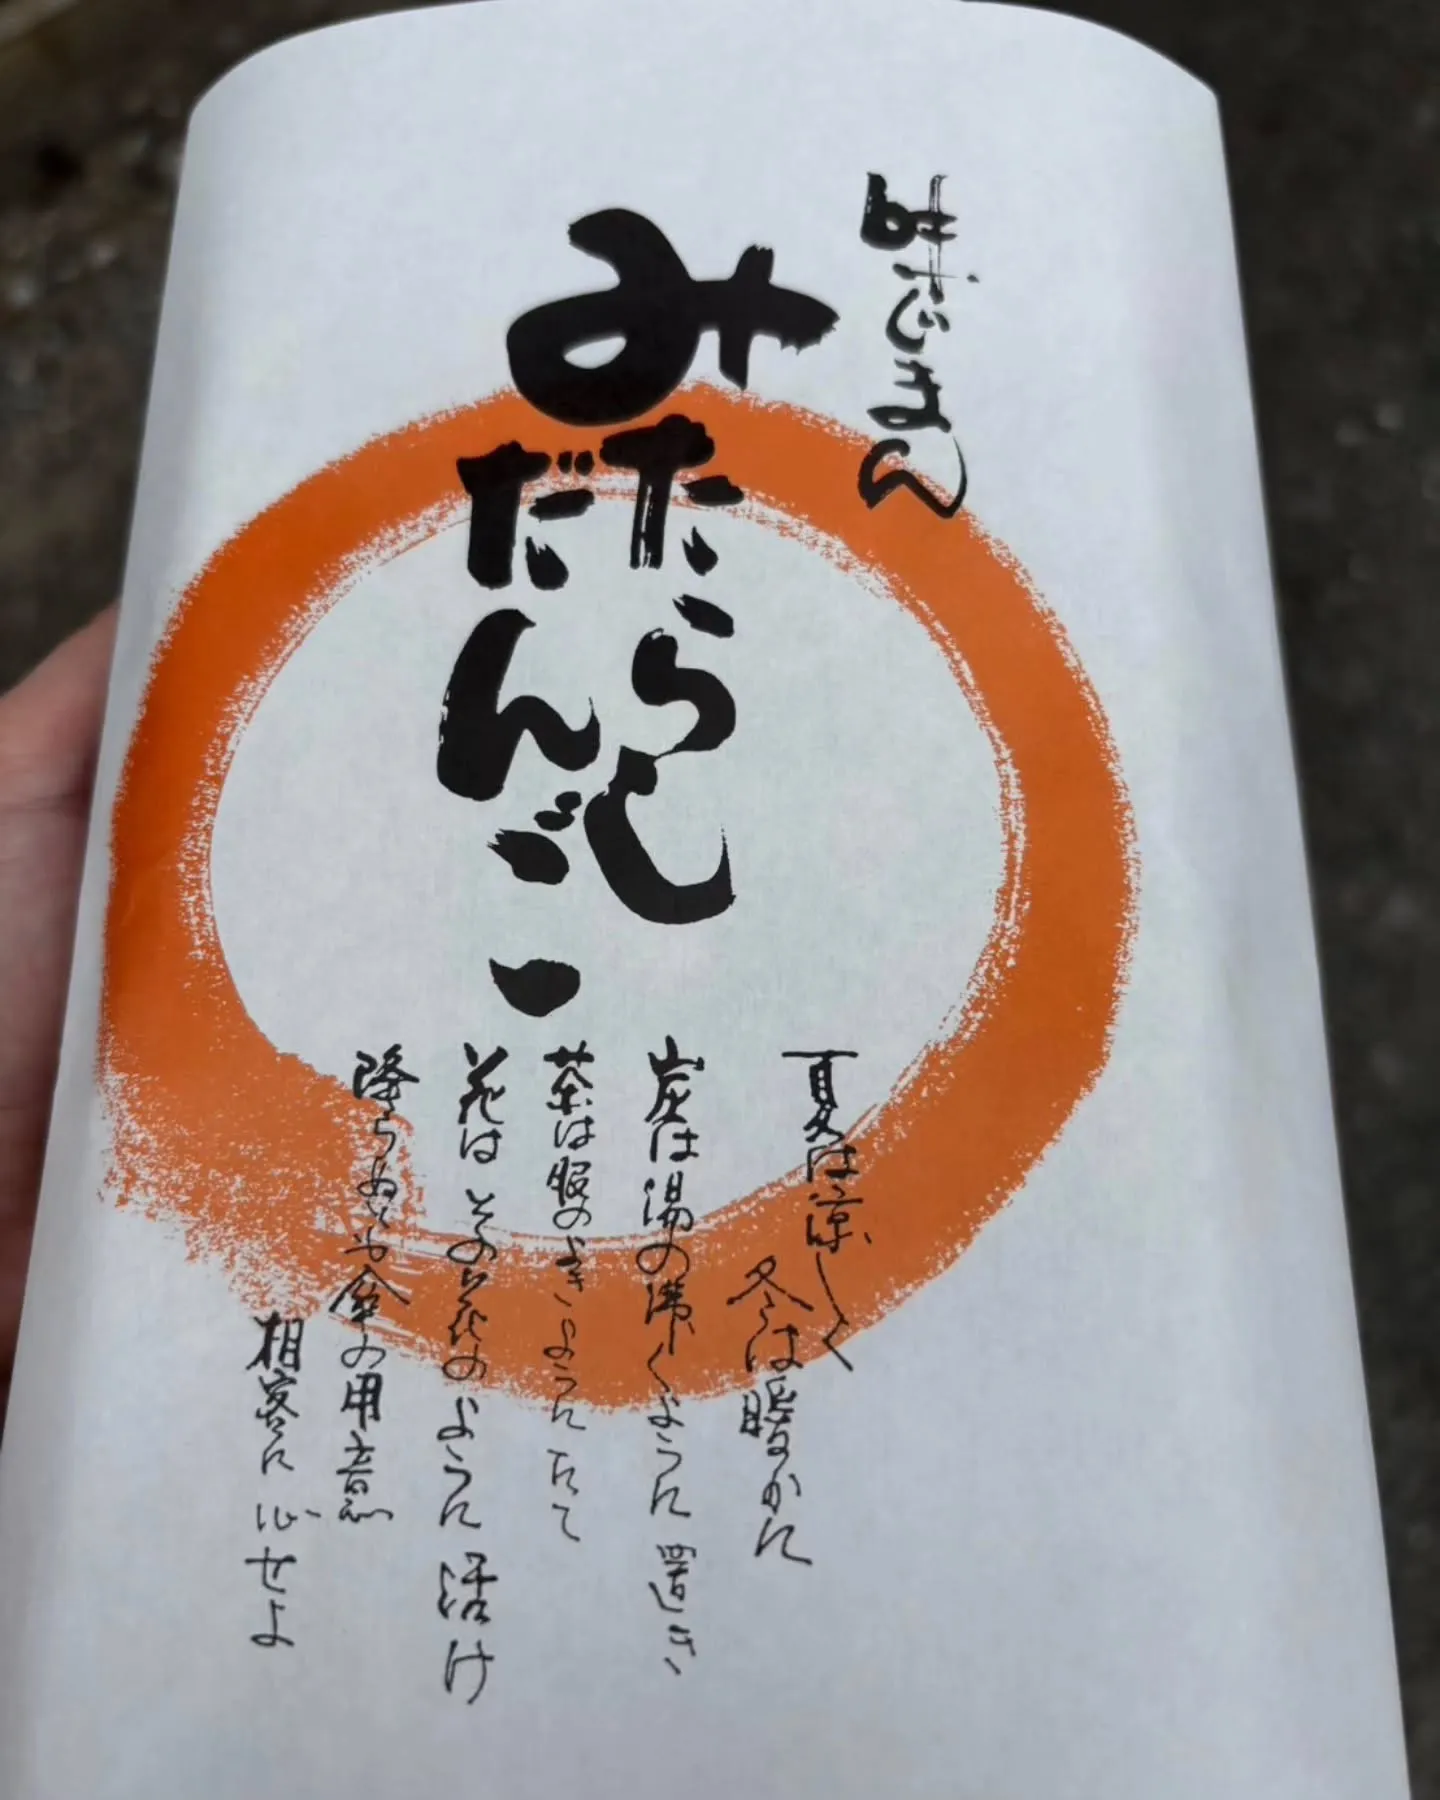 味じまん
みたらし
だんご
夏は涼しく
冬は暖かに
炭は湯の沸くように置き
茶は服のよきようにたて
花はその花のように活け
降らぬとも傘の用意
相客に心せよ